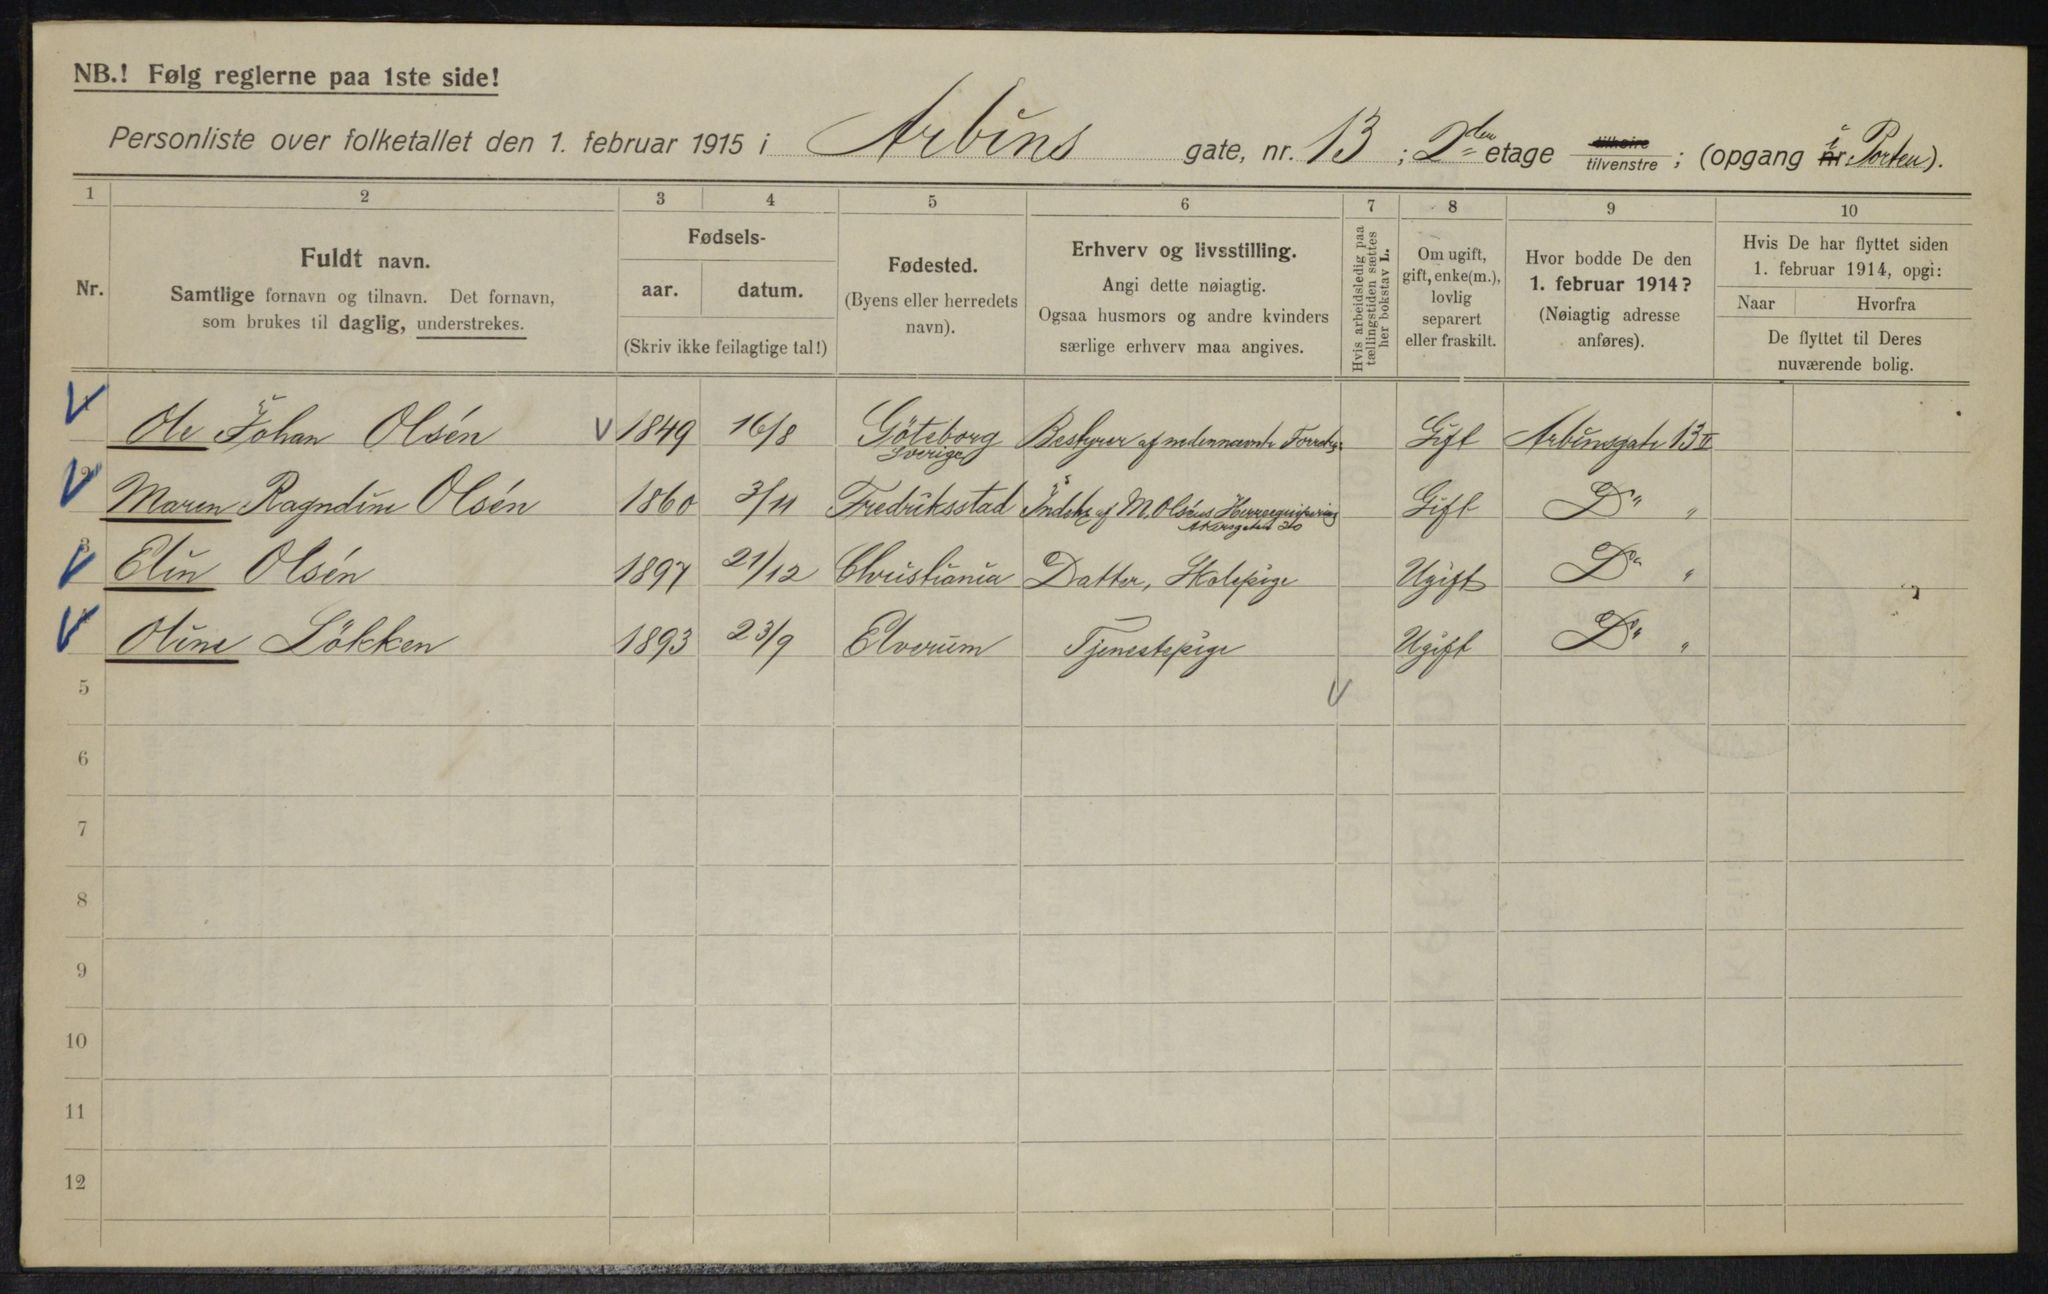 NB.! Følg reglerne paa 1ste side!
Personliste over folketallet den 1. februar 1915 i Arbins gate, nr. 13 ; 2den etage tilhøire tilvenstre ; (opgang nr. i Porten).
1 2 3 4 5 6 7 8 9 10
Nr.
Fuldt navn.
Samtlige fornavn og tilnavn. Det fornavn,
som brukes til daglig, understrekes.
Fødsels-
aar. datum.
(Skriv ikke feilagtige tal!)
Fødested.
(Byens eller herredets
navn).
Erhverv og livsstilling.
Angi dette nøiagtig.
Ogsaa husmors og andre kvinders
særlige erhverv maa angives.
Hvis arbeidsledig paa
tællingstiden sættes
her bokstav L.
Om ugift,
gift, enke(m.),
lovlig
separert
eller fraskilt.
Hvor bodde De den
1. februar 1914?
(Nøiagtig adresse
anføres).
Hvis De har flyttet siden
1. februar 1914, opgi:
Naar Hvorfra
De flyttet til Deres
nuværende bolig.
1 Ole Johan Olsén 1849 16/8 Göteborg Sverige Bestyrer af nedennævnte Forretn. Gift Arbinsgate 13 II
2 Maren Ragndine Olsén 1860 3/11 Fredriksstad Indeh. af M. Olséns Herreequipering Akersgaten 20 Gift Do "
3 Elin Olsén 1897 21/12 Christiania Datter, Skolepige Ugift Do "
4 Oline Lökken 1893 23/9 Elverum Tjenestepige Ugift Do "
5
6
7
8
9
10
11
12